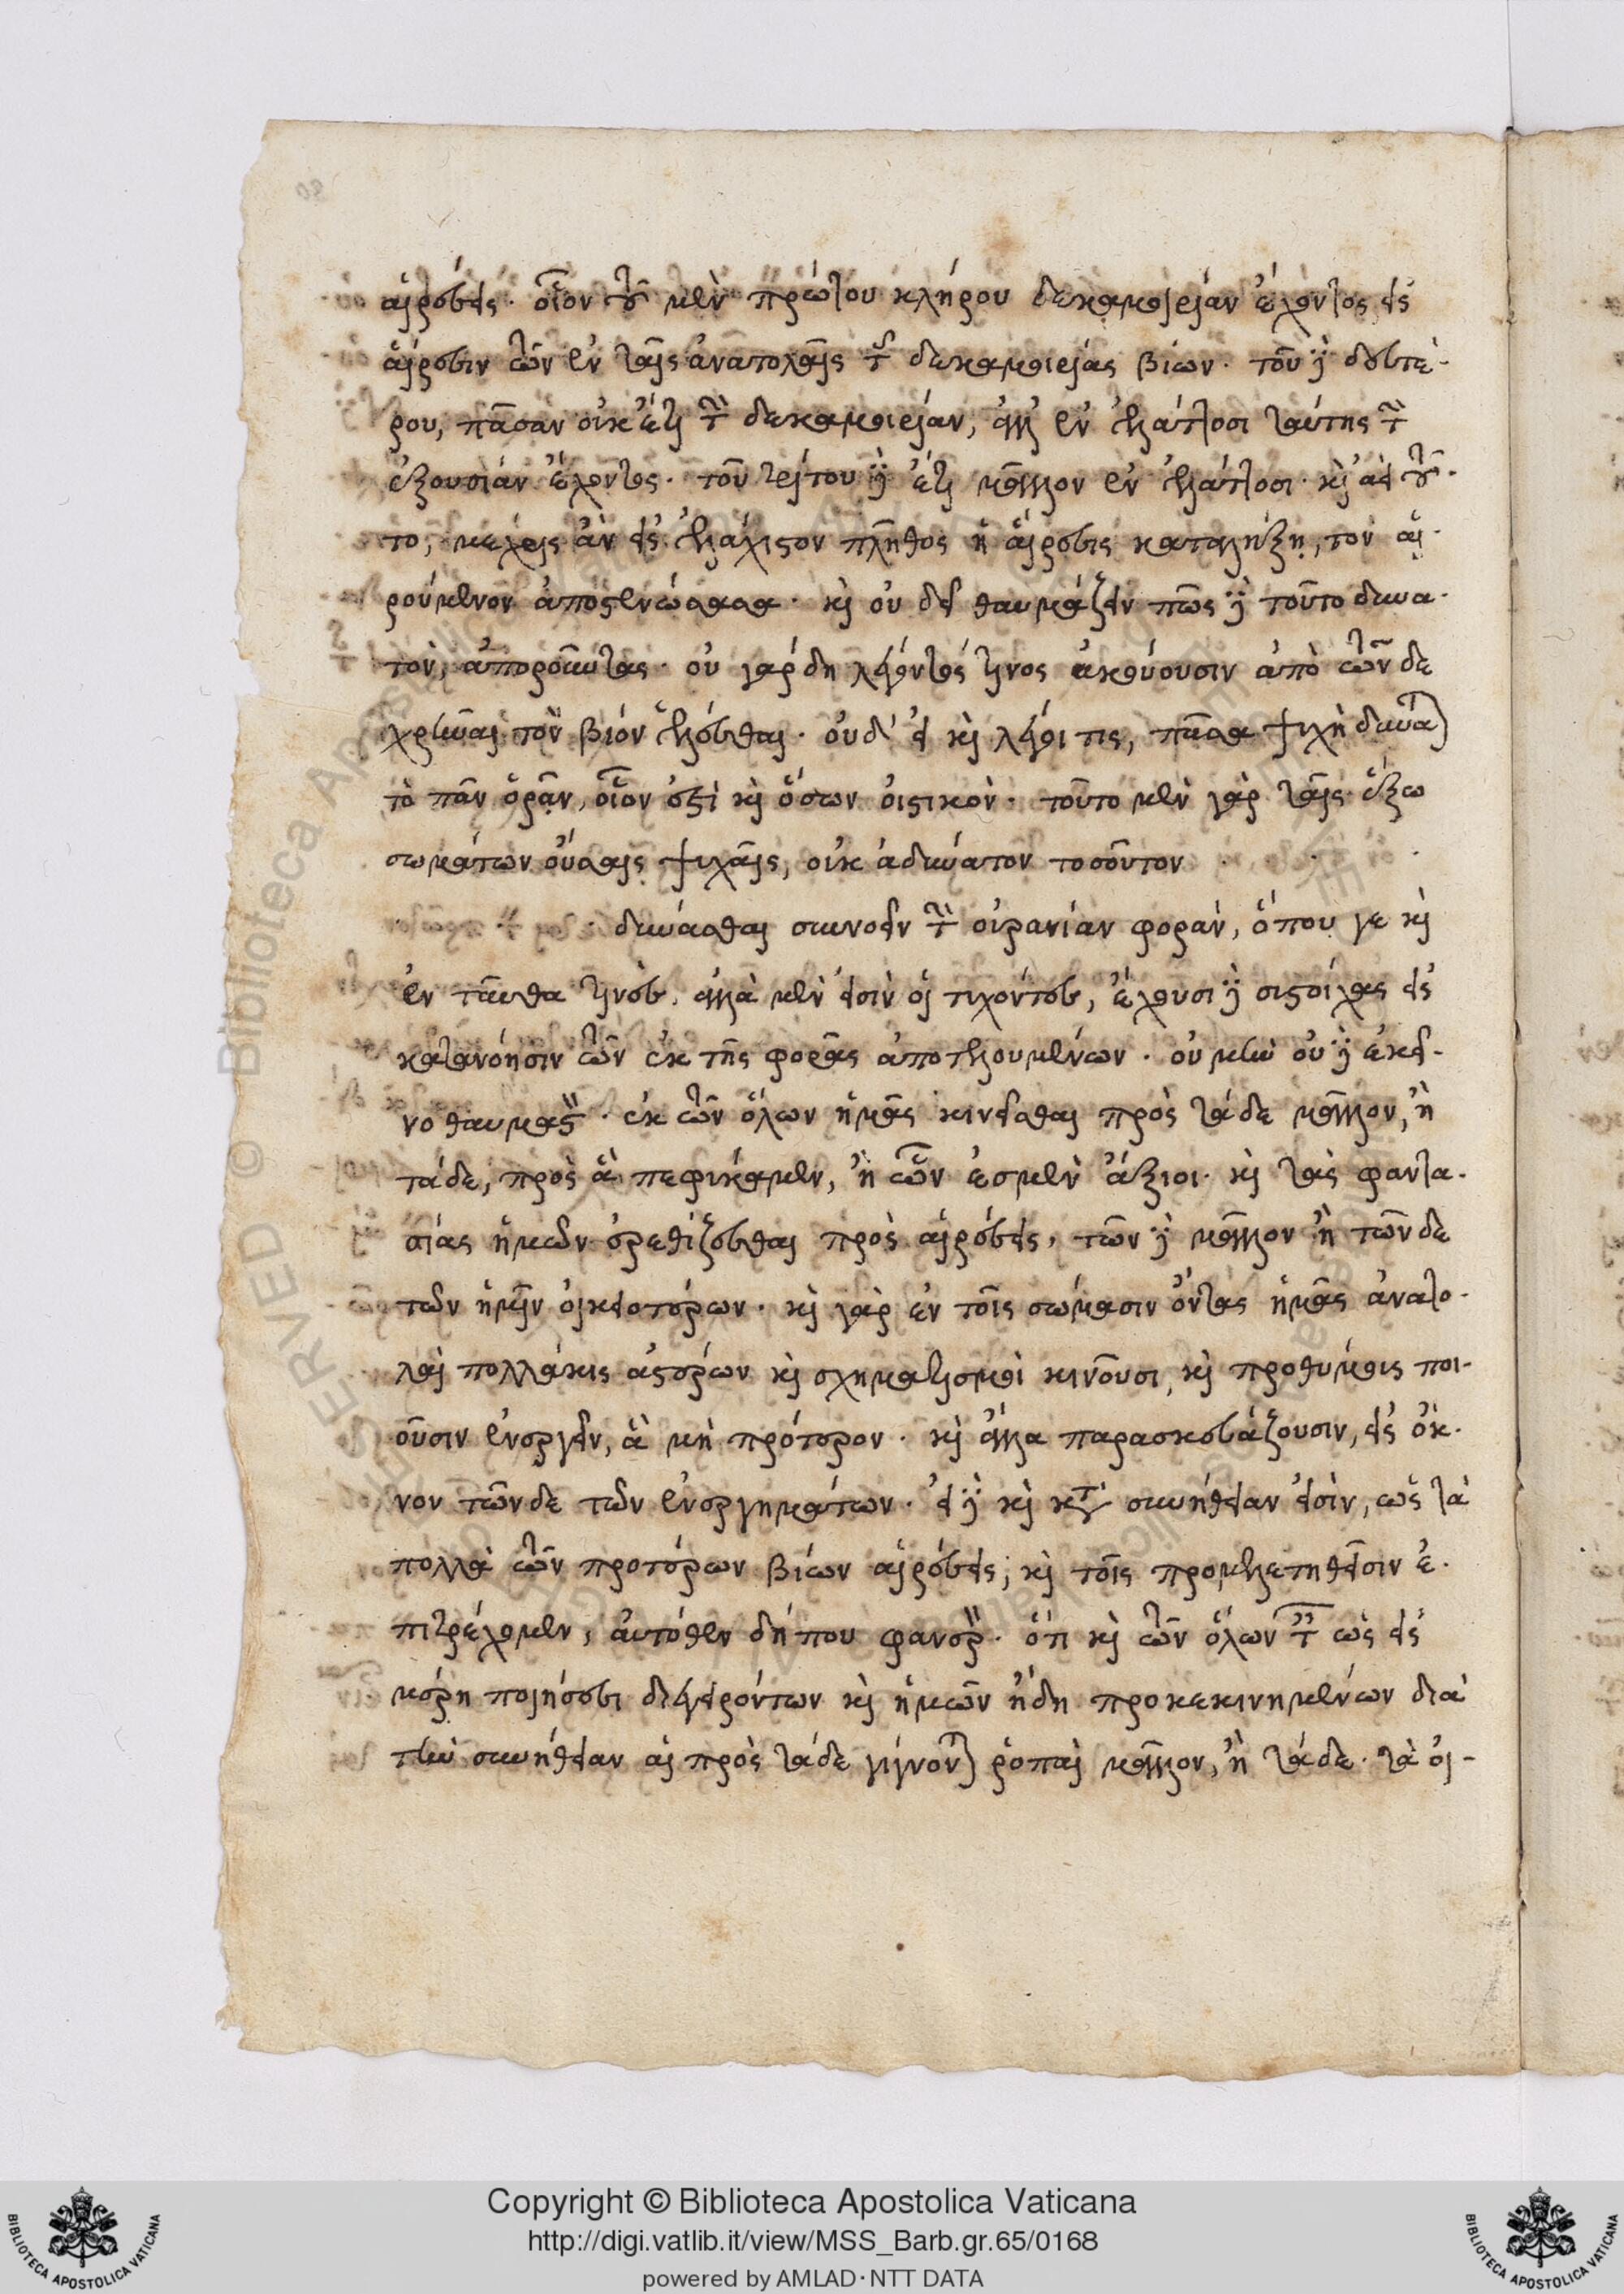 αἱρέσεις. οἷον τοῦ μὲν πρώτου κλήρου δεκαμοιρίαν ἔχοντος εἰς
αἵρεσιν τῶν ἐν ταῖς ἀνατολαῖς τῆς δεκαμοιρίας βίων. τοῦ δὲ δευτέ-
ρου, πᾶσαν οὐκέτι τὴν δεκαμοιρίαν, ἀλλ' ἐν ἐλάττοσι ταύτης τὴν
ἐξουσίαν ἔχοντος. τοῦ τρίτου δὲ ἔτι μᾶλλον ἐν ἐλάττοσι. καὶ ἀεὶ τοῦ-
το, μέχρις ἂν εἰς ἐλάχιστον πλῆθος ἡ αἵρεσις καταλήξῃ, τὸν αἱ-
ρούμενον ἀποστενώσασα. καὶ οὐ δεῖ θαυμάζειν πῶς δὲ τοῦτο δυνα-
τὸν, ἀποροῦντας. οὐ γὰρ δὴ λέγοντός τινος ἀκούουσιν ἀπὸ τῶνδε
χρῆναι τὸν βίον ἑλέσθαι. οὐδ' εἰ καὶ λέγοι τις, πᾶσα ψυχὴ δύναται
τὸ πᾶν ὁρᾶν, οἷόν ἐστὶ καὶ ὅσων οἰστικόν. τοῦτο μὲν γὰρ ταῖς ἔξω
σωμάτων οὔσαις ψυχαῖς, οὐκ ἀδύνατον τοσοῦτον
δύνασθαι συνοεῖν τὴν οὐρανίαν φορὰν, ὅπου γε καὶ
ἐνταῦθα τινὲς. ἀλλὰ μὲν εἰσὶν οἱ τυχόντες, ἔχουσι δὲ συστοίχως εἰς
κατανόησιν τῶν ἐκ τῆς φορᾶς ἀποτελουμένων. οὐ μὴν οὐδὲ ἐκεῖ-
νο θαυμαστὸν. ἐκ τῶν ὅλων ἡμᾶς κινεῖσθαι πρὸς τάδε μᾶλλον, ἢ
τάδε, πρὸς ἃ πεφύκαμεν, ἢ ὧν ἐσμὲν ἄξιοι. καὶ τὰς φαντα-
σίας ἡμῶν ἐρεθίζεσθαι πρὸς αἱρέσεις, τῶνδε μᾶλλον ἢ τῶνδε
τῶν ἡμῖν οἰκειοτέρων. καὶ γὰρ ἐν τοῖς σώμασιν ὄντας ἡμᾶς ἀνατο-
λαὶ πολλάκις ἀστέρων καὶ σχηματισμοὶ κινοῦσι, καὶ προθύμους ποι-
οῦσιν ἐνεργεῖν, ἃ μὴ πρότερον. καὶ ἄλλα παρασκευάζουσιν, εἰς ὄκ-
νον τῶνδε τῶν ἐνεργημάτων. εἰ δὲ καὶ κατὰ συνήθειαν εἰσὶν, ὡς τὰ
πολλὰ τῶν προτέρων βίων αἱρέσεις, καὶ τοῖς προμελετηθεῖσιν ἐ-
πιτρέχομεν, αὐτόθεν δήπου φανερὸν. ὅτι καὶ τῶν ὅλων τὴν ὡς εἰς
μέρη ποίησιν διεγειρόντων καὶ ἡμῶν ἤδη προκεκινημένων διὰ
τὴν συνήθειαν αἱ πρὸς τάδε γίγνονται ῥοπαὶ μᾶλλον, ἢ τάδε. τὰ οἰ-
Copyright © Biblioteca Apostolica Vaticana
http://digi.vatlib.it/view/MSS_Barb.gr.65/0168
powered by AMLAD·NTT DATA